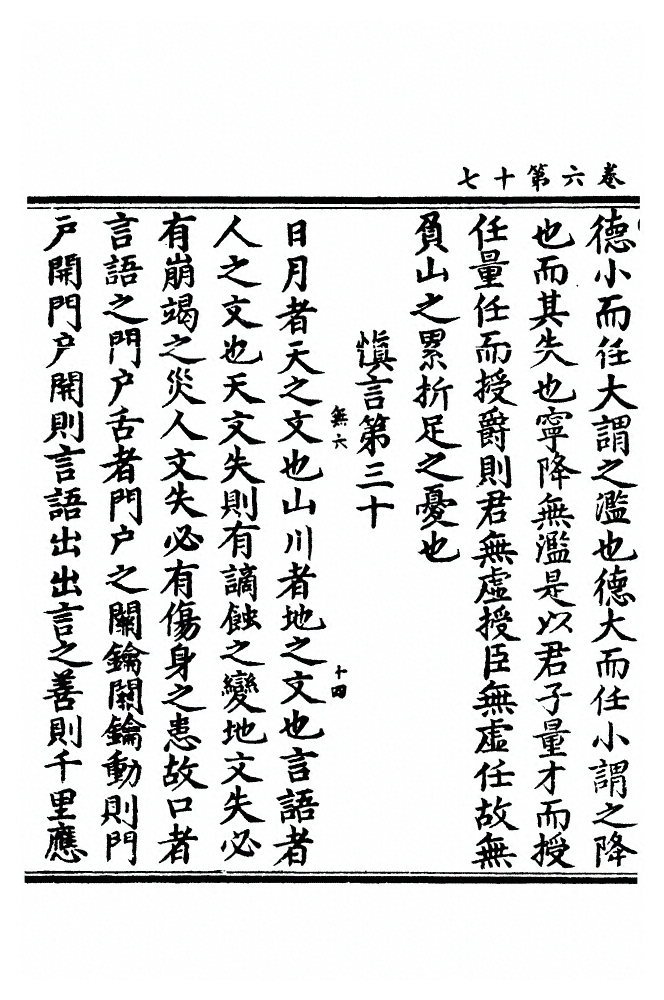 卷六第十七
德小而任大謂之濫也德大而任小謂之降
也而其失也寧降無濫是以君子量才而授
任量任而授爵則君無虛授臣無虛任故無
負山之累折足之憂也
慎言第三十
無六
十四
日月者天之文也山川者地之文也言語者
人之文也天文失則有謫蝕之變地文失必
有崩竭之災人文失必有傷身之患故口者
言語之門戶舌者門戶之關鑰關鑰動則門
戶開門戶開則言語出出言之善則千里應